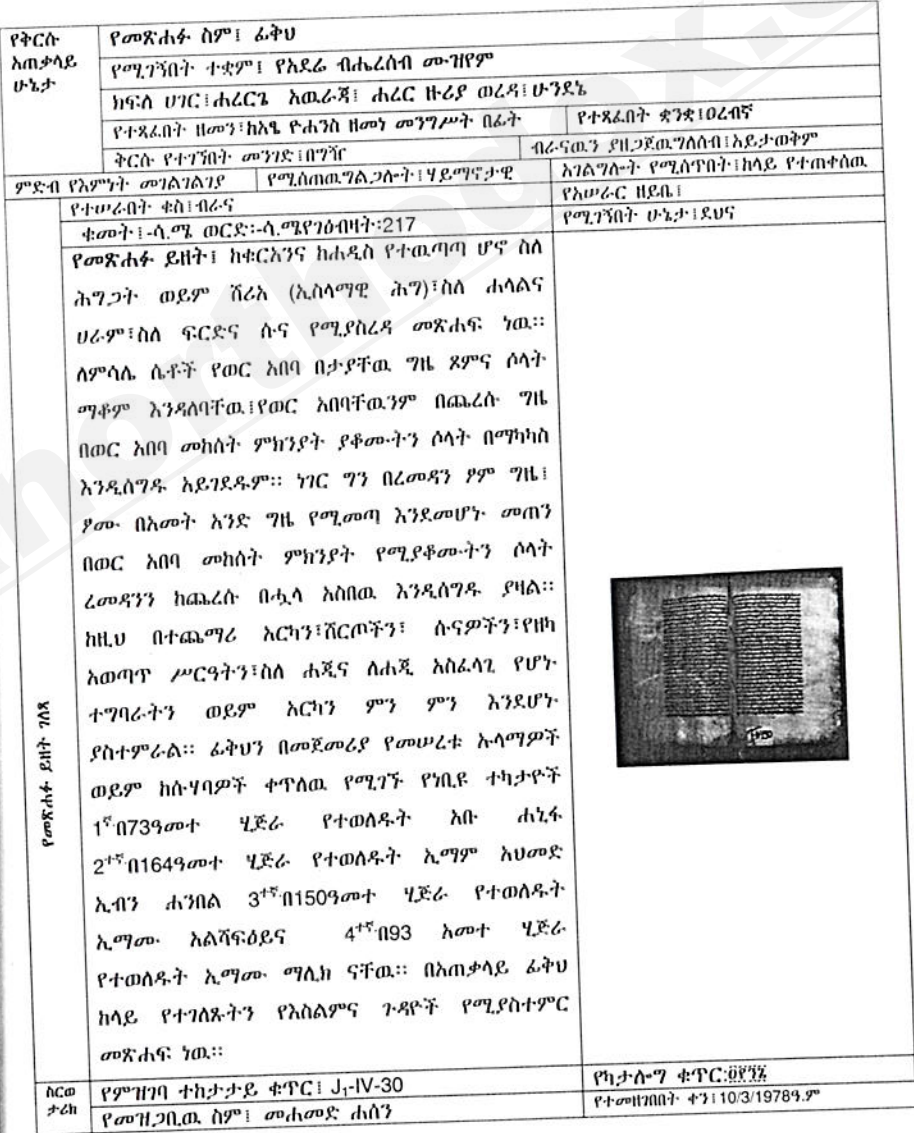 የቅርሱ አጠቃላይ ሁኔታ
የመጽሐፉ ስም፤ ፊቅህ
የሚገኝበት ተቋም፤ የአደሬ ብሔረሰብ ሙዝየም
ክፍለ ሀገር፤ሐረርጌ አዉራጃ፤ ሐረር ዙሪያ ወረዳ፤ሁንደኔ
የተጻፈበት ዘመን፣ከአፄ ዮሐንስ ዘመነ መንግሥት በፊት የተጻፈበት ቋንቋ፤ዐረብኛ
ቅርሱ የተገኘበት መንገድ፤በግዥ ብራናዉን ያዘጋጀዉግለሰብ፤አይታወቅም
ምድብ የእምነት መገልገልገያ የሚሰጠዉግልጋሎት፤ሃይማኖታዊ አገልግሎት የሚሰጥበት፤ከላይ የተጠቀሰዉ
የተሠራበት ቁስ፤ብራና የአሠራር ዘይቤ፤
ቁመት፤-ሳ.ሜ ወርድ፡-ሳ.ሜየገዕብዛት፡217 የሚገኝበት ሁኔታ፤ደህና
የመጽሐፉ ይዘት ገለጻ
የመጽሐፉ ይዘት፤ ከቁርአንና ከሐዲስ የተዉጣጣ ሆኖ ስለ
ሕግጋት ወይም ሸሪአ (ኢስላማዊ ሕግ)፣ስለ ሐላልና
ሀራም፣ስለ ፍርድና ሱና የሚያስረዳ መጽሐፍ ነዉ።
ለምሳሌ ሴቶች የወር አበባ በታያቸዉ ግዜ ጾምና ሶላት
ማቆም እንዳለባቸዉ፤የወር አበባቸዉንም በጨረሱ ግዜ
በወር አበባ መከሰት ምክንያት ያቆሙትን ሶላት በማካካስ
እንዲሰግዱ አይገደዱም። ነገር ግን በረመዳን ፆም ግዜ፤
ፆሙ በአመት አንድ ግዜ የሚመጣ እንደመሆኑ መጠን
በወር አበባ መከሰት ምክንያት የሚያቆሙትን ሶላት
ረመዳንን ከጨረሱ በሗላ አስበዉ እንዲሰግዱ ያዛል።
ከዚህ በተጨማሪ አርካን፣ሸርጦችን፤ ሱናዎችን፣የዘካ
አወጣጥ ሥርዓትን፣ስለ ሐጂና ለሐጂ አስፈላጊ የሆኑ
ተግባራትን ወይም አርካን ምን ምን እንደሆኑ
ያስተምራል። ፊቅህን በመጀመሪያ የመሠረቱ ኡላማዎች
ወይም ከሱሃባዎች ቀጥለዉ የሚገኙ የነቢዩ ተካታዮች
1ኛ በ73ዓመተ ሂጅራ የተወለዱት አቡ ሐኒፋ
2ተኛ በ164ዓመተ ሂጅራ የተወለዱት ኢማም አህመድ
ኢብን ሐንበል 3ተኛ በ150ዓመተ ሂጅራ የተወለዱት
ኢማሙ አልሻፍዕይና 4ተኛ በ93 አመተ ሂጅራ
የተወለዱት ኢማሙ ማሊክ ናቸዉ። በአጠቃላይ ፊቅህ
ከላይ የተገለጹትን የእስልምና ጉዳዮች የሚያስተምር
መጽሐፍ ነዉ።
ስርወ ታሪክ
የምዝገባ ተከታታይ ቁጥር፤ J₁-IV-30 የካታሎግ ቁጥር:
የመዝጋቢዉ ስም፤ መሐመድ ሐሰን የተመዘገበበት ቀን፤10/3/1978ዓ.ም